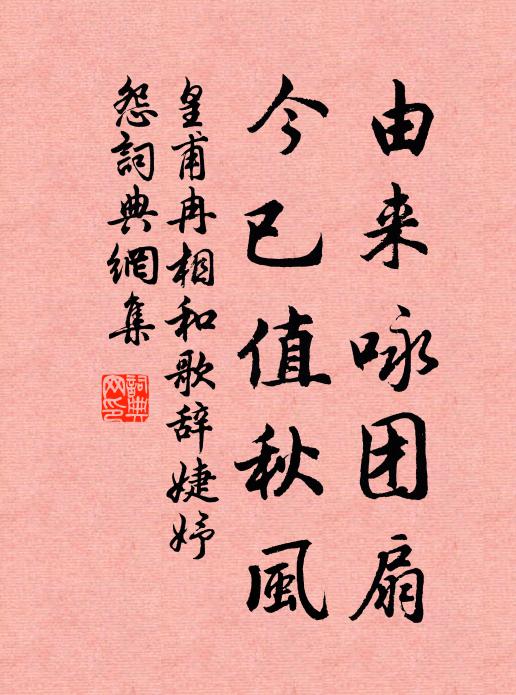 由来咏团扇
今已值秋風
皇甫冉相和歌辞婕妤
怨詞典網集
詞典网印